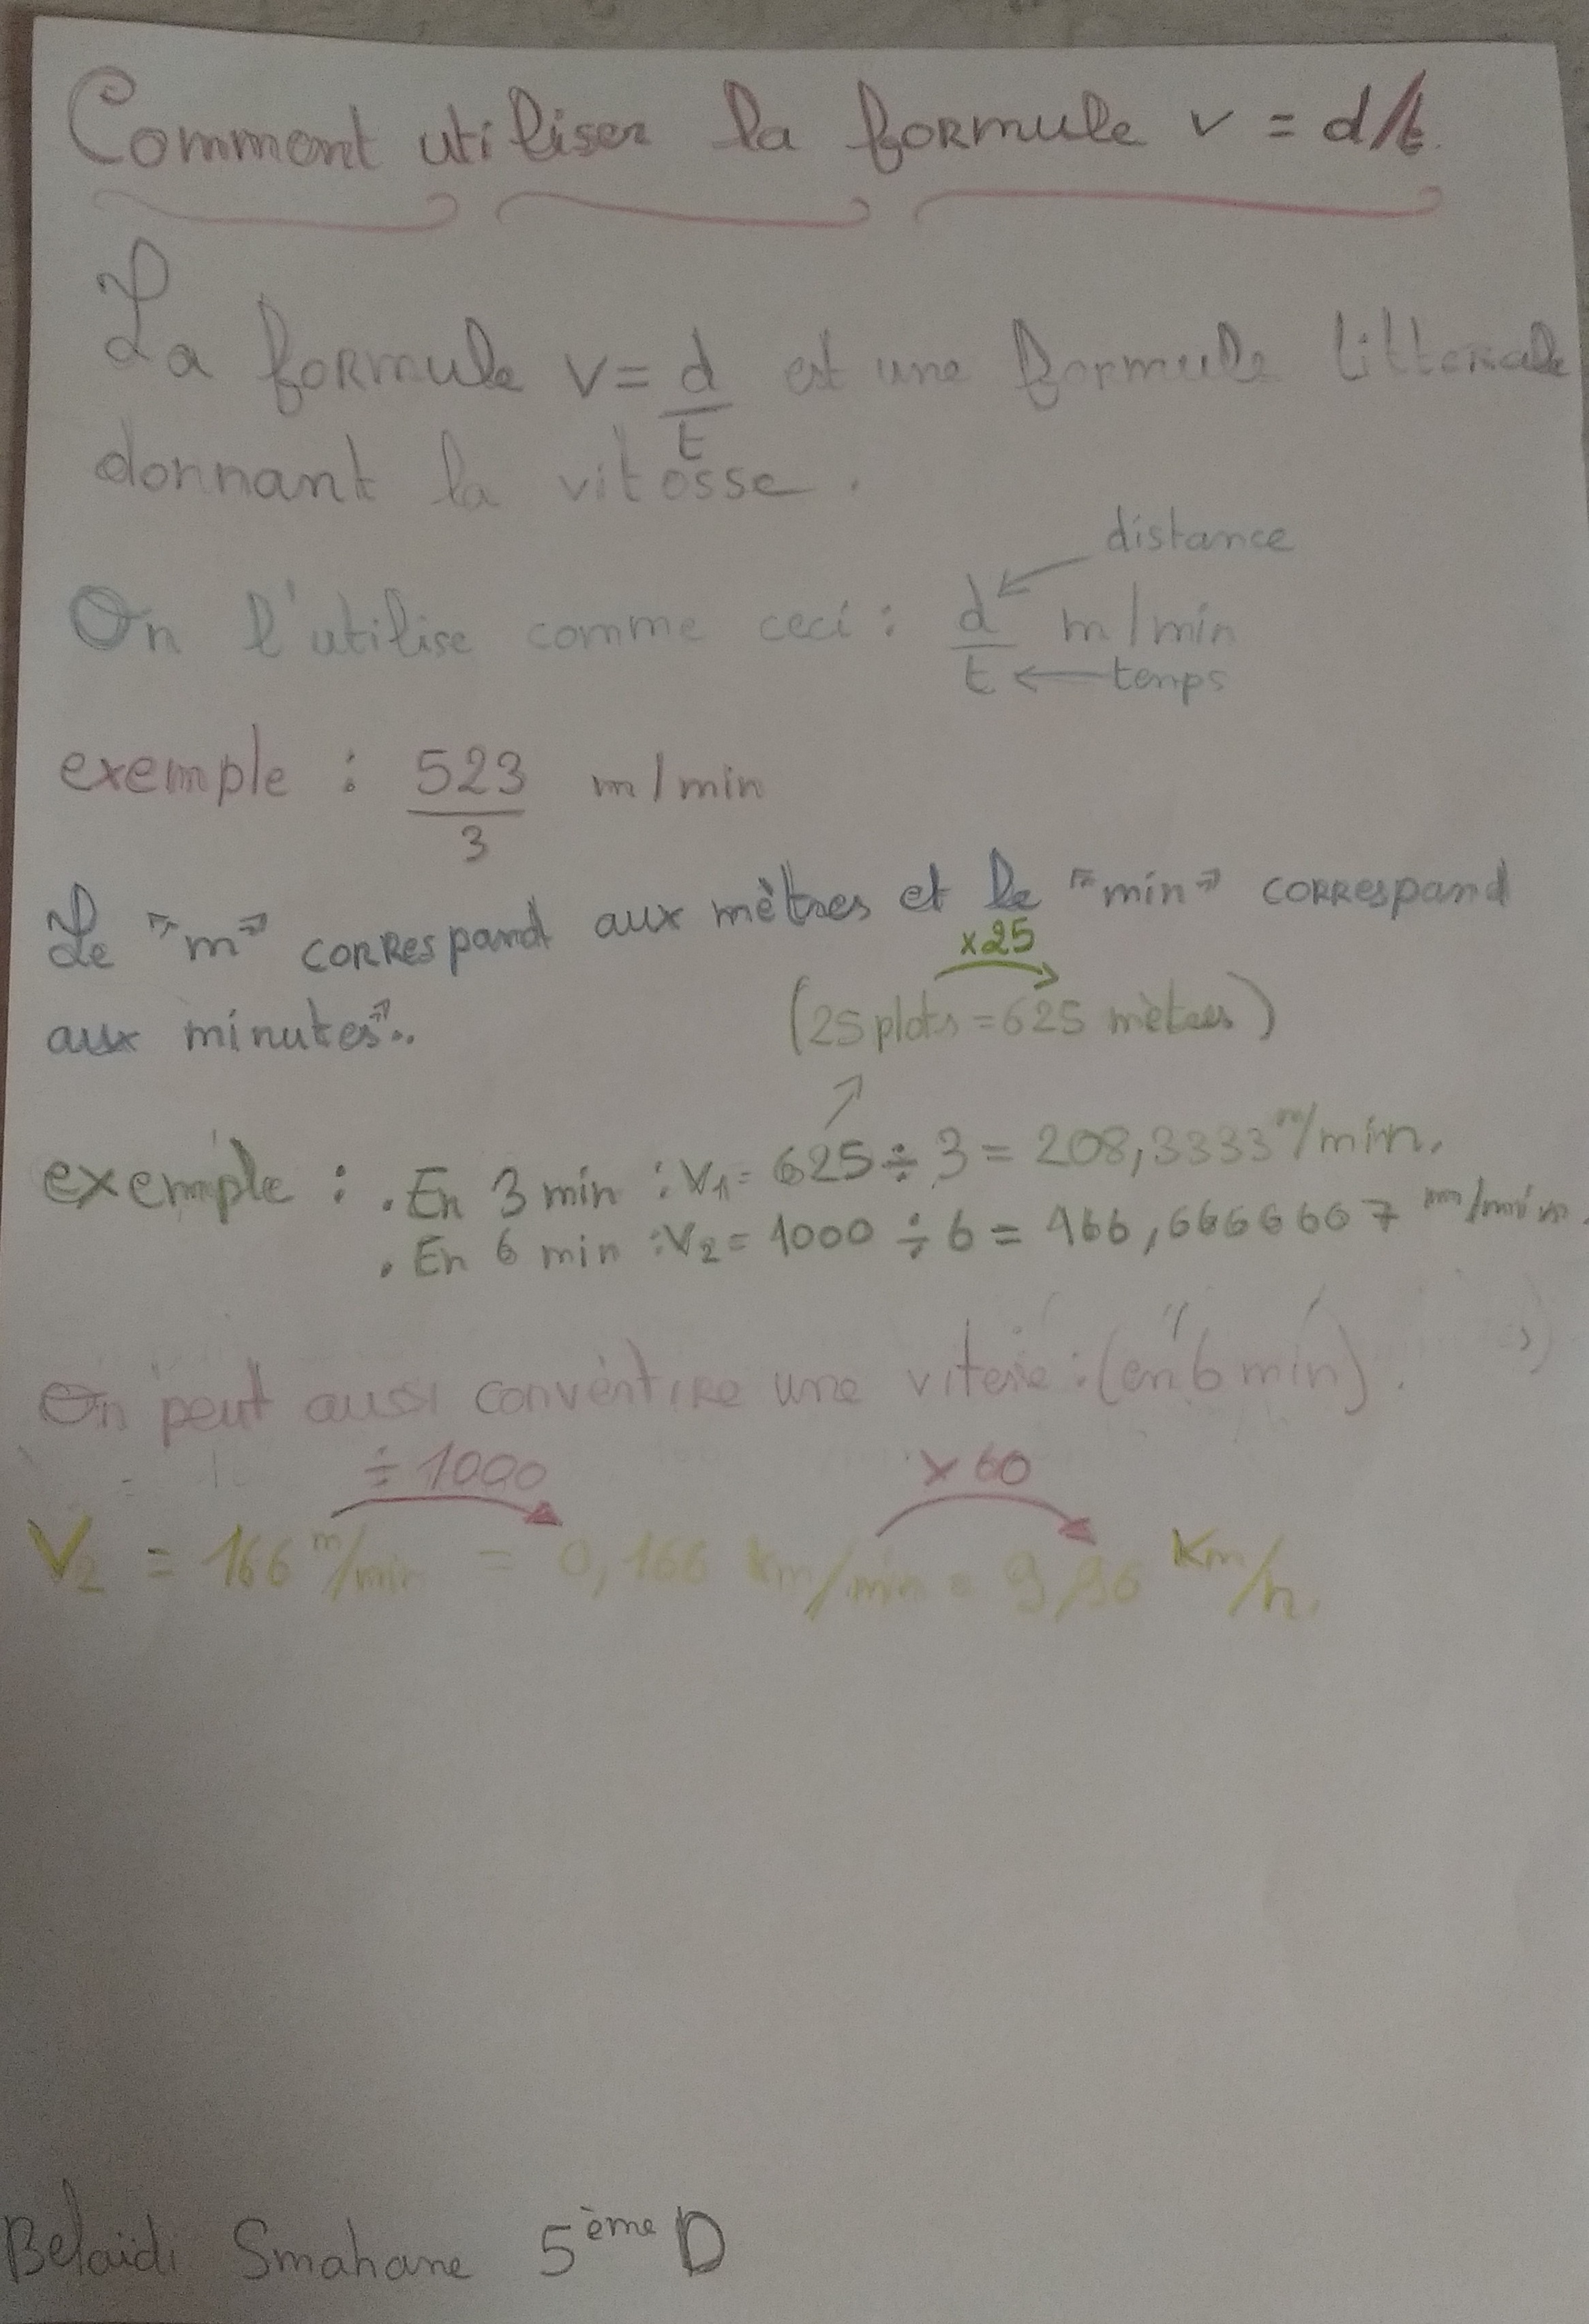 Comment utiliser la formule v = d/t.
La formule v = d/t est une formule litterale
donnant la vitesse.
distance
On l'utilise comme ceci : d/t m/min
temps
exemple : 523/3 m/min
Le "m" correspand aux mètres et le "min" correspand
x25
aux minutes".
(25 plots = 625 mètres)
exemple : . En 3 min : V1 = 625 ÷ 3 = 208,3333 m/min.
. En 6 min : V2 = 1000 ÷ 6 = 166,6666667 m/min.
On peut aussi convèrtire une : (en 6 min).
÷ 1000 x 60
V2 = 166 m/min = 0,166 Km/min = 9,96 Km/h.
Belaidi Smahane 5ème D